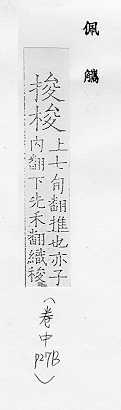 佩觿
捘梭
上七旬翻推也亦子
内翻下先禾翻織梭
(卷中 P27B)